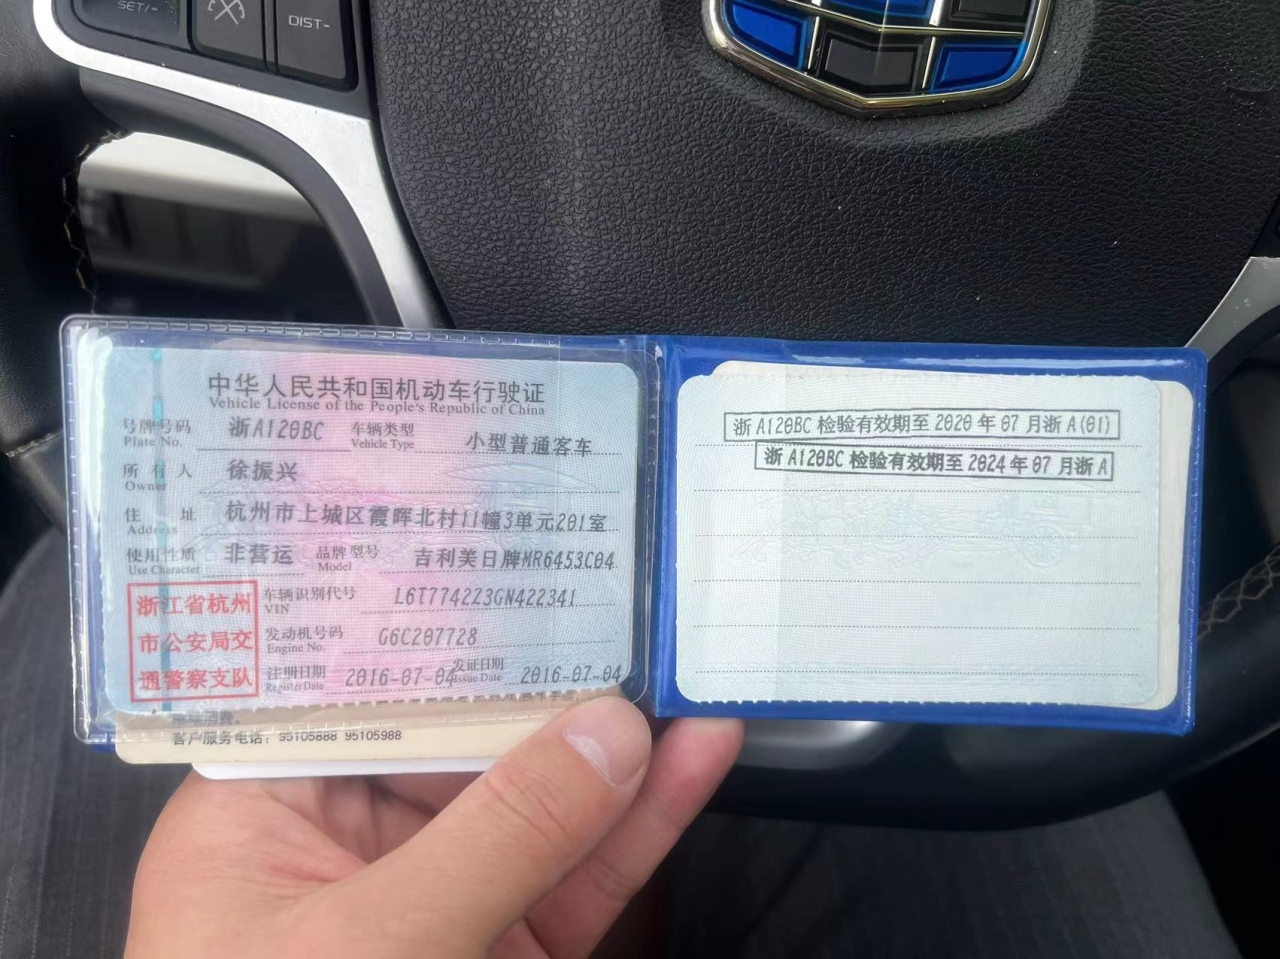 SET/-
DIST-
中华人民共和国机动车行驶证
Vehicle License of the People's Republic of China
号牌号码 浙A120BC 车辆类型 小型普通客车
Plate No. Vehicle Type
所有人 徐振兴
Owner
住址 杭州市上城区霞晖北村11幢3单元201室
Address
使用性质 非营运 品牌型号 吉利美日牌MR6453C04
Use Character Model
浙江省杭州
市公安局交
通警察支队
车辆识别代号 L6T7742Z3GN422341
VIN
发动机号码 G6C207728
Engine No.
注册日期 2016-07-04 发证日期 2016-07-04
Register Date Issue Date
客户服务电话：95105888 95105988
浙A120BC 检验有效期至2020年07月浙A(01)
浙A120BC 检验有效期至2024年07月浙A